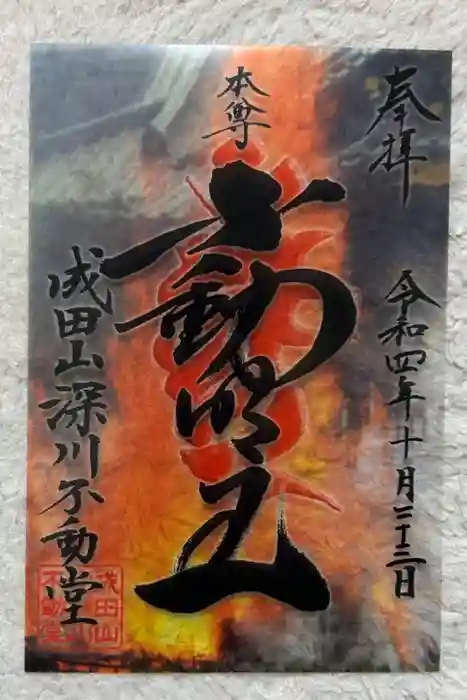 奉拝
令和四年十月二十三日
本尊
不動明王
成田山深川不動堂